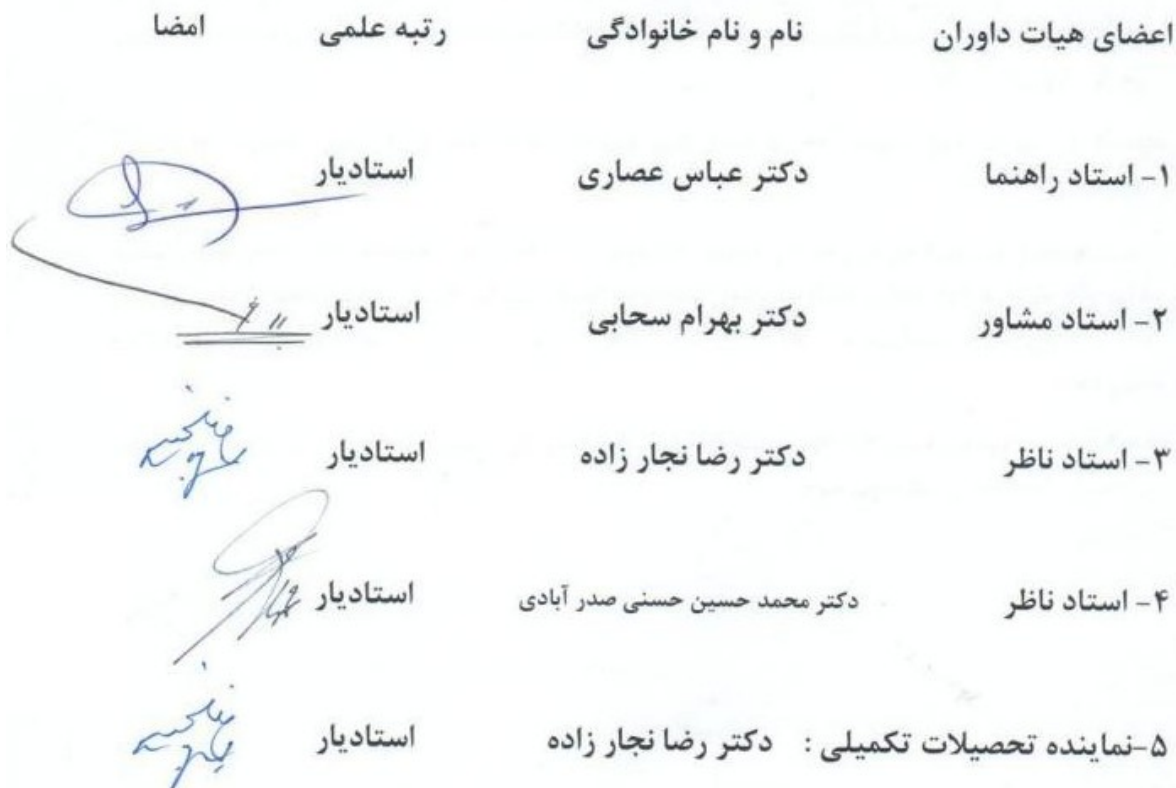 اعضای هیات داوران نام و نام خانوادگی رتبه علمی امضا
۱- استاد راهنما دکتر عباس عصاری استادیار
۲- استاد مشاور دکتر بهرام سحابی استادیار
۳- استاد ناظر دکتر رضا نجار زاده استادیار
۴- استاد ناظر دکتر محمد حسین حسنی صدر آبادی استادیار
۵-نماینده تحصیلات تکمیلی : دکتر رضا نجار زاده استادیار